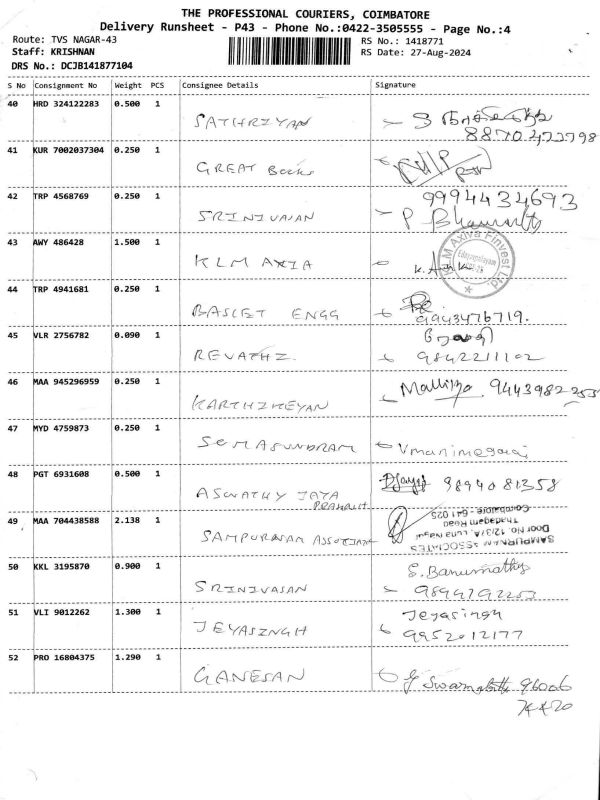 THE PROFESSIONAL COURIERS, COIMBATORE
Delivery Runsheet - P43 - Phone No.:0422-3505555 - Page No.:4
Route: TVS NAGAR-43 RS No.: 1418771
Staff: KRISHNAN RS Date: 27-Aug-2024
DRS No.: DCJB141877104
S No Consignment No Weight PCS Consignee Details Signature
40 HRD 324122283 0.500 1
SATHRIYAN
8870472798
41 KUR 7002037304 0.250 1
GREAT Books
42 TRP 4568769 0.250 1 9994434693
SRINIVASAN P
43 AWY 486428 1.500 1
KLM AXIA
KLM Axiva Finvest Ltd.
44 TRP 4941681 0.250 1
BASCET ENGG 9943476719.
45 VLR 2756782 0.090 1 ரேவதி
REVATHI. 9842211102
46 MAA 945296959 0.250 1
KARTHIKEYAN
47 MYD 4759873 0.250 1
SOMASUNDRAM Vmanimegalai
48 PGT 6931608 0.500 1 9894081358
ASWATHY JAYA
49 MAA 704438588 2.138 1
SAMPURNAM ASSOCIATE
SAMPURNAM ASSOCIATES
Thadagam Road
Coimbatore - 641 025
50 KKL 3195870 0.900 1 S. Banumathy
SRINIVASAN
51 VLI 9012262 1.300 1 Jeyasingh
JEYASINGH 9952012177
52 PRO 16804375 1.290 1
GANESAN